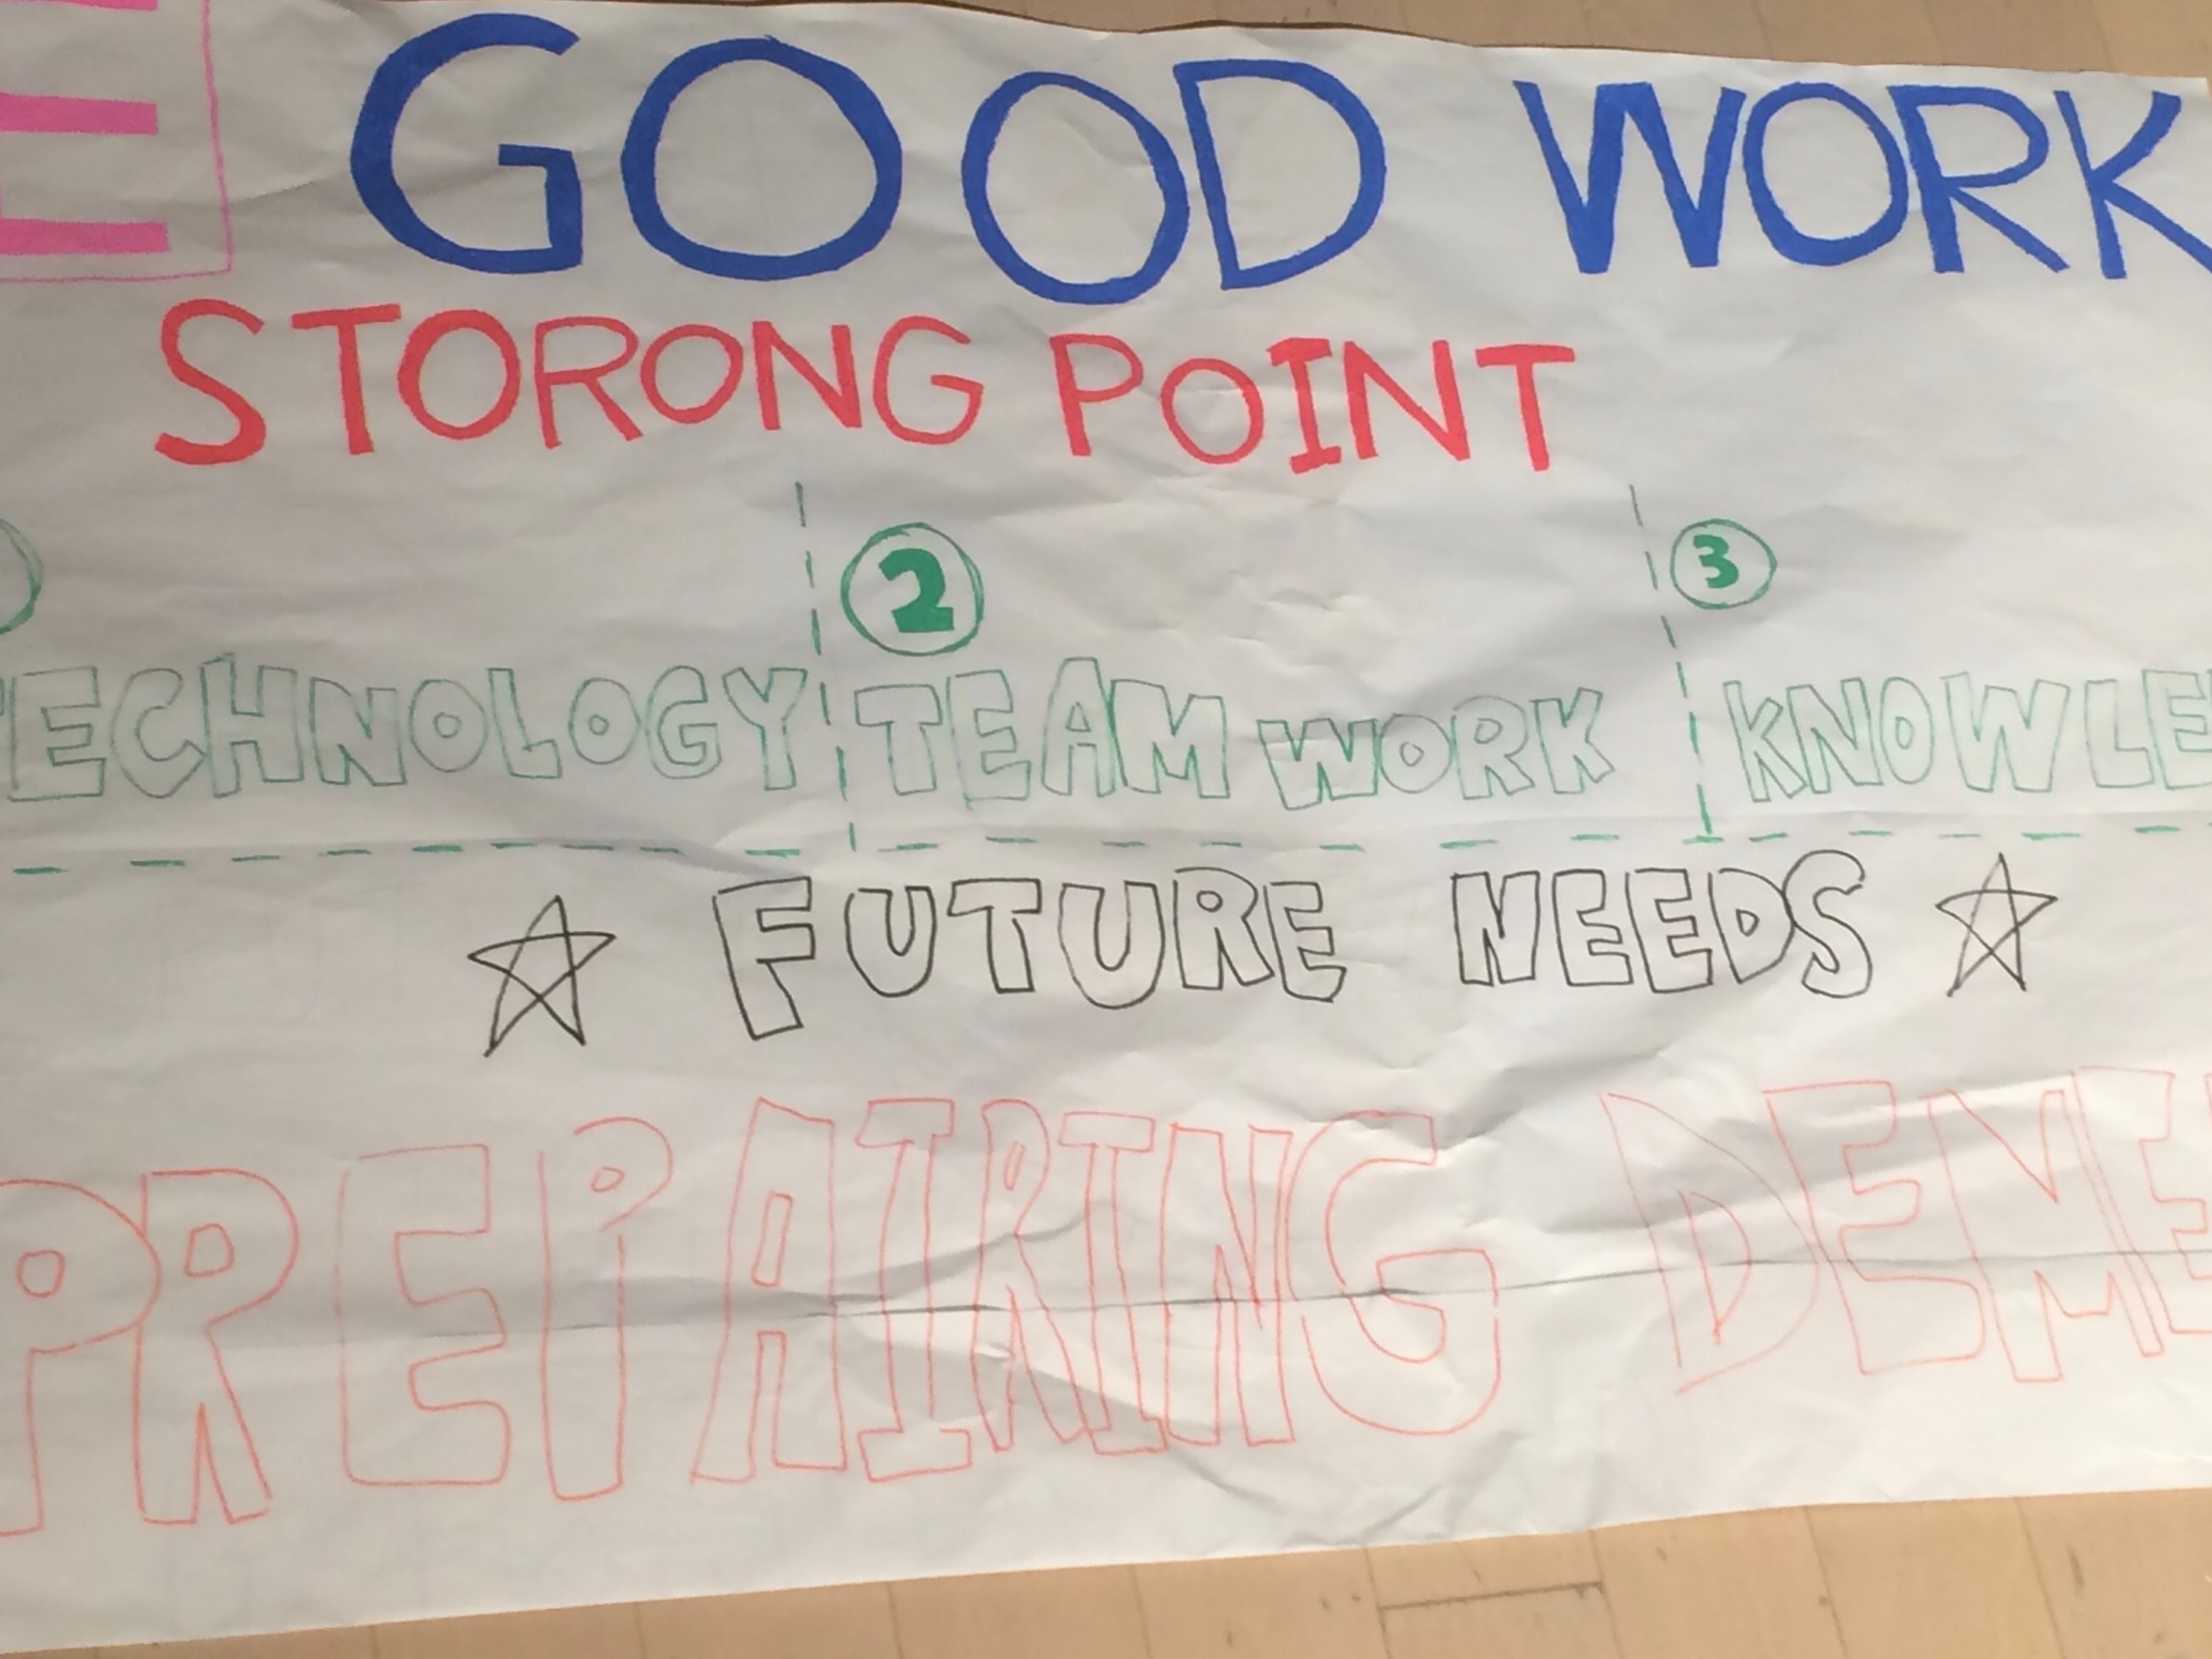 E GOOD WORK
STORONG POINT
② ③
ECHNOLOGY TEAM WORK KNOWLE
☆ FUTURE NEEDS ☆
PREPAIRING DEME